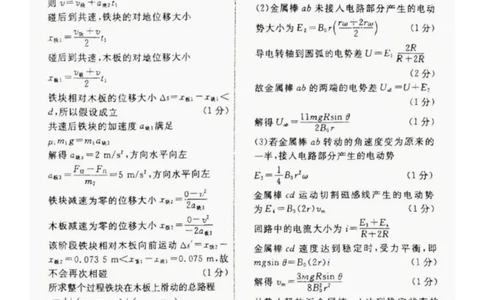 则 v=v板+a板2t1
碰后到共速,铁块的对地位移大小
x铁1=(v铁+v)/2 t1
碰后到共速,木板的对地位移大小
x板1=(v板+v)/2 t1
铁块相对木板的位移大小 Δs=x板1−x铁1<
d,所以假设成立 (1分)
共速后铁块的加速度 a铁3满足
μ1m1g=m1a铁3
解得 a铁3=2 m/s²,方向水平向左
=5 m/s²,方向水平向左
铁块减速为零的位移大小 x铁2=(0−v²)/
木板减速为零的位移大小 x板2=(0−v²)/
该阶段铁块相对木板向前运动 Δs'=x铁2−
x板2=0.073 5 m<x板1−x铁1=0.075 m,故
不会再次相碰 (1分)
所求整个过程铁块在木板上滑动的总路程
(2)金属棒 ab 未接入电路部分产生的电动
势大小为 E2=B0r((rω+2rω)/2) (1分)
导电转轴到圆弧的电势差 U=E1 2R/(R+2R)
(2分)
故金属棒 ab 的两端的电势差 Uab=U+E2
(1分)
解得 Uab=11mgRsin θ/2B0r (1分)
(3)若金属棒 ab 转动的角速度变为原来的
一半,接入电路部分产生的电动势
E3=1/4 B0r²ω (1分)
金属棒 cd 运动切割磁感线产生的电动势
为 E4=B0(2r)vm (1分)
回路中的电流大小为 i=(E3+E4)/(R+2R)
金属棒 cd 速度达到稳定时,受力平衡,即
mgsin θ=B0(2r)i (1分)
解得 vm=3mgRsin θ/8B0²r² (1分)